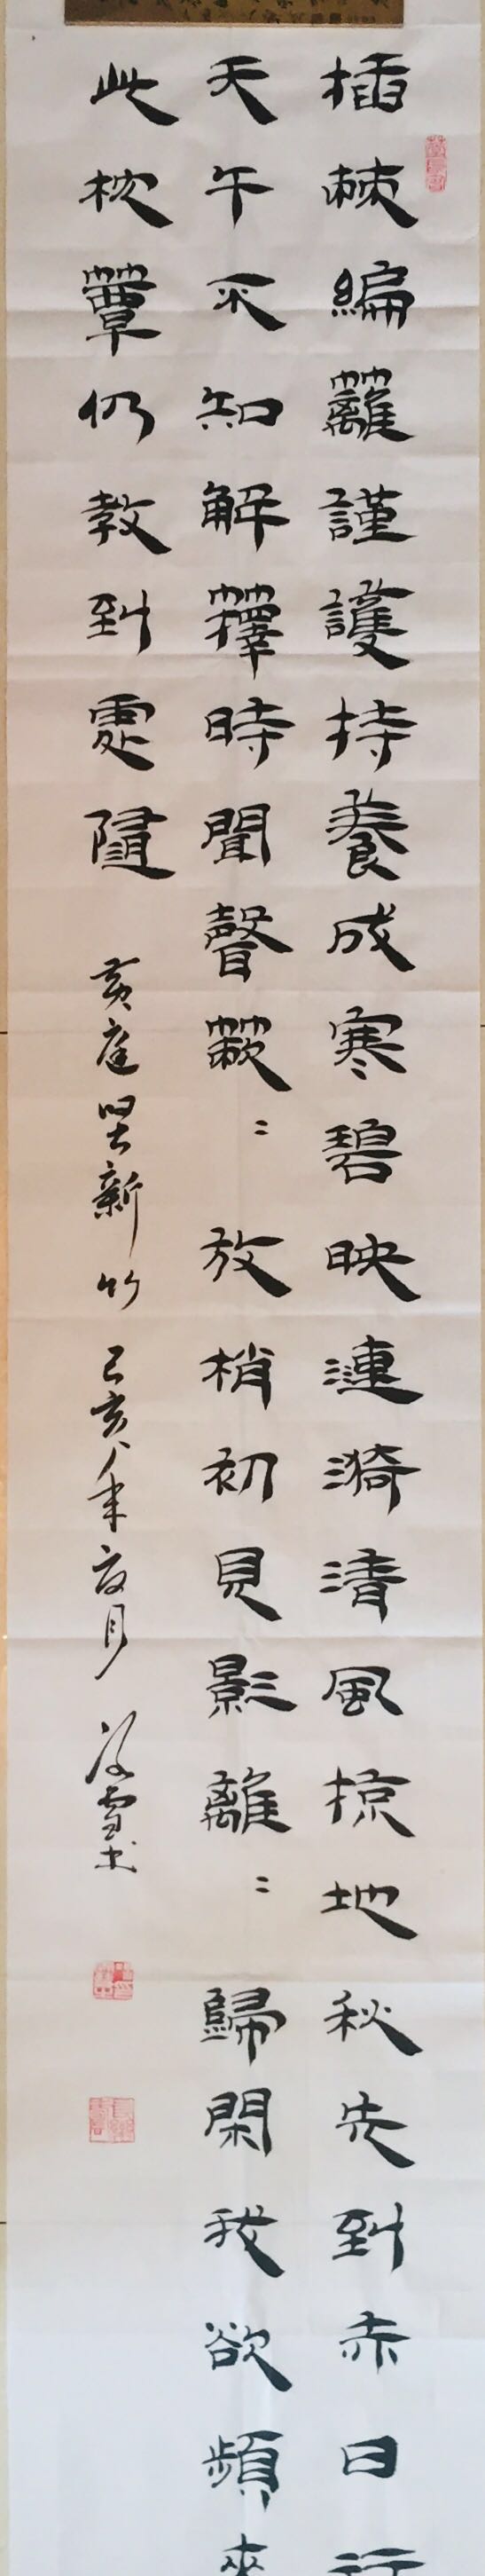 插棘編籬謹護持養成寒碧映漣漪清風掠地秋先到赤日行
天午不知解籜時聞聲簌〻放梢初見影離〻歸閑我欲頻來
此枕簟仍教到處隨 黃庭堅新竹 己亥年夏月 凌雪書